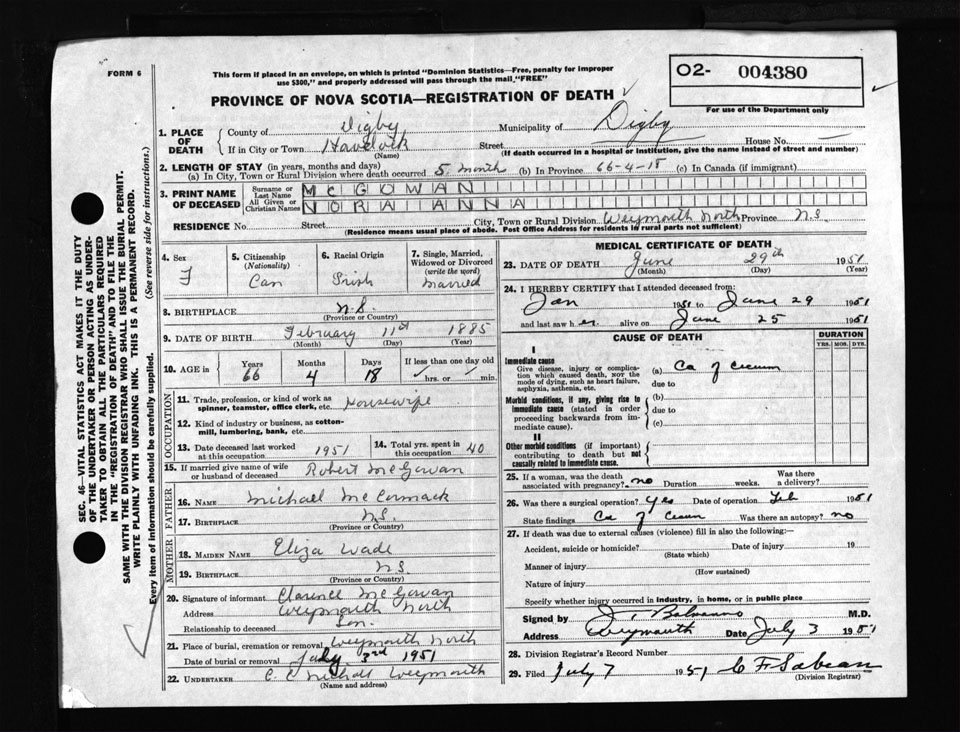 FORM 6
This form if placed in an envelope, on which is printed "Dominion Statistics—Free, penalty for improper
use $300," and properly addressed will pass through the mail "FREE"
PROVINCE OF NOVA SCOTIA—REGISTRATION OF DEATH
O2- 004380
For use of the Department only
1. PLACE OF DEATH
County of Digby Municipality of Digby
If in City or Town Havelock Street House No.
(Name) (If death occurred in a hospital or institution, give the name instead of street and number)
2. LENGTH OF STAY (in years, months and days)
(a) In City, Town or Rural Division where death occurred 5 month (b) In Province 66-4-18 (c) In Canada (if immigrant)
3. PRINT NAME OF DECEASED
Surname or Last Name McGOWAN
All Given or Christian Names NORA ANNA
RESIDENCE No. Street City, Town or Rural Division Weymouth North Province N.S.
(Residence means usual place of abode. Post Office Address for residents in rural parts not sufficient)
4. Sex F
5. Citizenship (Nationality) Can
6. Racial Origin Irish
7. Single, Married, Widowed or Divorced (write the word) Married
8. BIRTHPLACE N.S.
(Province or Country)
9. DATE OF BIRTH February 11th 1885
(Month) (Day) (Year)
10. AGE in Years 66 Months 4 Days 18 If less than one day old hrs. or min.
OCCUPATION
11. Trade, profession, or kind of work as spinner, teamster, office clerk, etc. Housewife
12. Kind of industry or business, as cotton-mill, lumbering, bank, etc.
13. Date deceased last worked at this occupation 1951
14. Total yrs. spent in this occupation 40
15. If married give name of wife or husband of deceased Robert McGowan
FATHER
16. NAME Michael McCormack
17. BIRTHPLACE N.S.
(Province or Country)
MOTHER
18. MAIDEN NAME Eliza Wade
19. BIRTHPLACE N.S.
(Province or Country)
20. Signature of informant Clarence McGowan
Address Weymouth North
Relationship to deceased Son
21. Place of burial, cremation or removal Weymouth North
Date of burial or removal July 3rd 1951
22. UNDERTAKER Weymouth
(Name and address)
MEDICAL CERTIFICATE OF DEATH
23. DATE OF DEATH June 29th 1951
(Month) (Day) (Year)
24. I HEREBY CERTIFY that I attended deceased from:
Jan 1951 to June 29 1951
and last saw her alive on June 25 1951
CAUSE OF DEATH
DURATION
YRS. MOS. DYS.
I
Immediate cause
Give disease, injury or complication which caused death, NOT the mode of dying, such as heart failure, asphyxia, asthenia, etc.
(a) Ca of Cecum
due to
Morbid conditions, if any, giving rise to immediate cause (stated in order proceeding backwards from immediate cause).
(b)
due to
(c)
II
Other morbid conditions (if important) contributing to death but not causally related to immediate cause.
25. If a woman, was the death associated with pregnancy? no Duration weeks. Was there a delivery?
26. Was there a surgical operation? yes Date of operation Feb 1951
State findings Ca of Cecum Was there an autopsy? no
27. If death was due to external causes (violence) fill in also the following:—
Accident, suicide or homicide? Date of injury 19
(State which)
Manner of injury
(How sustained)
Nature of injury
Specify whether injury occurred in industry, in home, or in public place
Signed by M.D.
Address Weymouth Date July 3 1951
28. Division Registrar's Record Number
29. Filed July 7 1951 C F Sabean
(Division Registrar)
SEC. 46—VITAL STATISTICS ACT MAKES IT THE DUTY
OF THE UNDERTAKER OR PERSON ACTING AS UNDER-
TAKER TO OBTAIN ALL THE PARTICULARS REQUIRED
IN THE "REGISTRATION OF DEATH" AND TO FILE THE
SAME WITH THE DIVISION REGISTRAR WHO SHALL ISSUE THE BURIAL PERMIT.
WRITE PLAINLY WITH UNFADING INK. THIS IS A PERMANENT RECORD.
Every item of information should be carefully supplied. (See reverse side for instructions.)